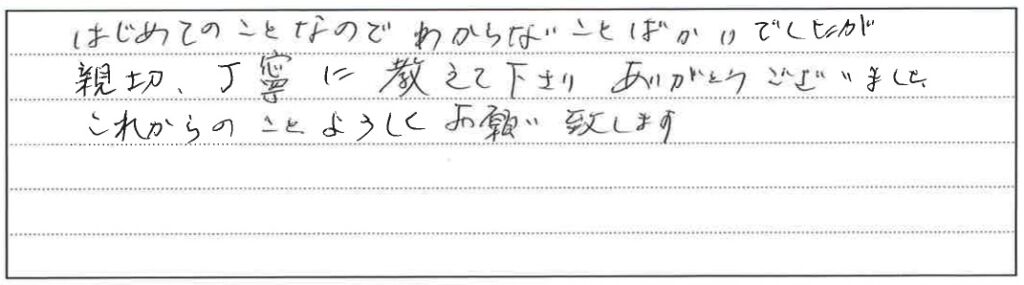 はじめてのことなのでわからないことばかりでしたが
親切、丁寧に教えて下さりありがとうございました
これからのことよろしくお願い致します